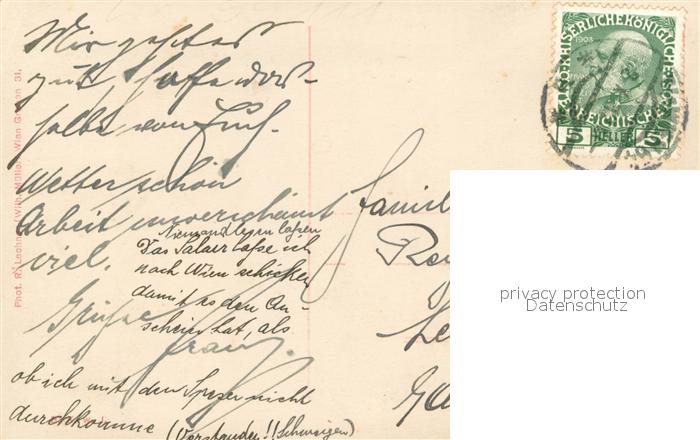 Mir geht es
gut, hoffe das-
selbe von Euch.
Wetter schön
Arbeit unverschämt
viel.
Grüsse
Franz.
Niemand lesen lassen
Das Salaer lasse ich
nach Wien schicken
damit es den An-
schein hat, als
ob ich mit den Spesen nicht
durchkomme (Verstanden!! Schweigen)
Famil
Phot. R. Lechner (Wilh. Müller) Wien Graben 31.
1908
KAISERLICHE KÖNIGLICHE
ÖSTERREICHISCHE POST
5 HELLER 5
privacy protection
Datenschutz